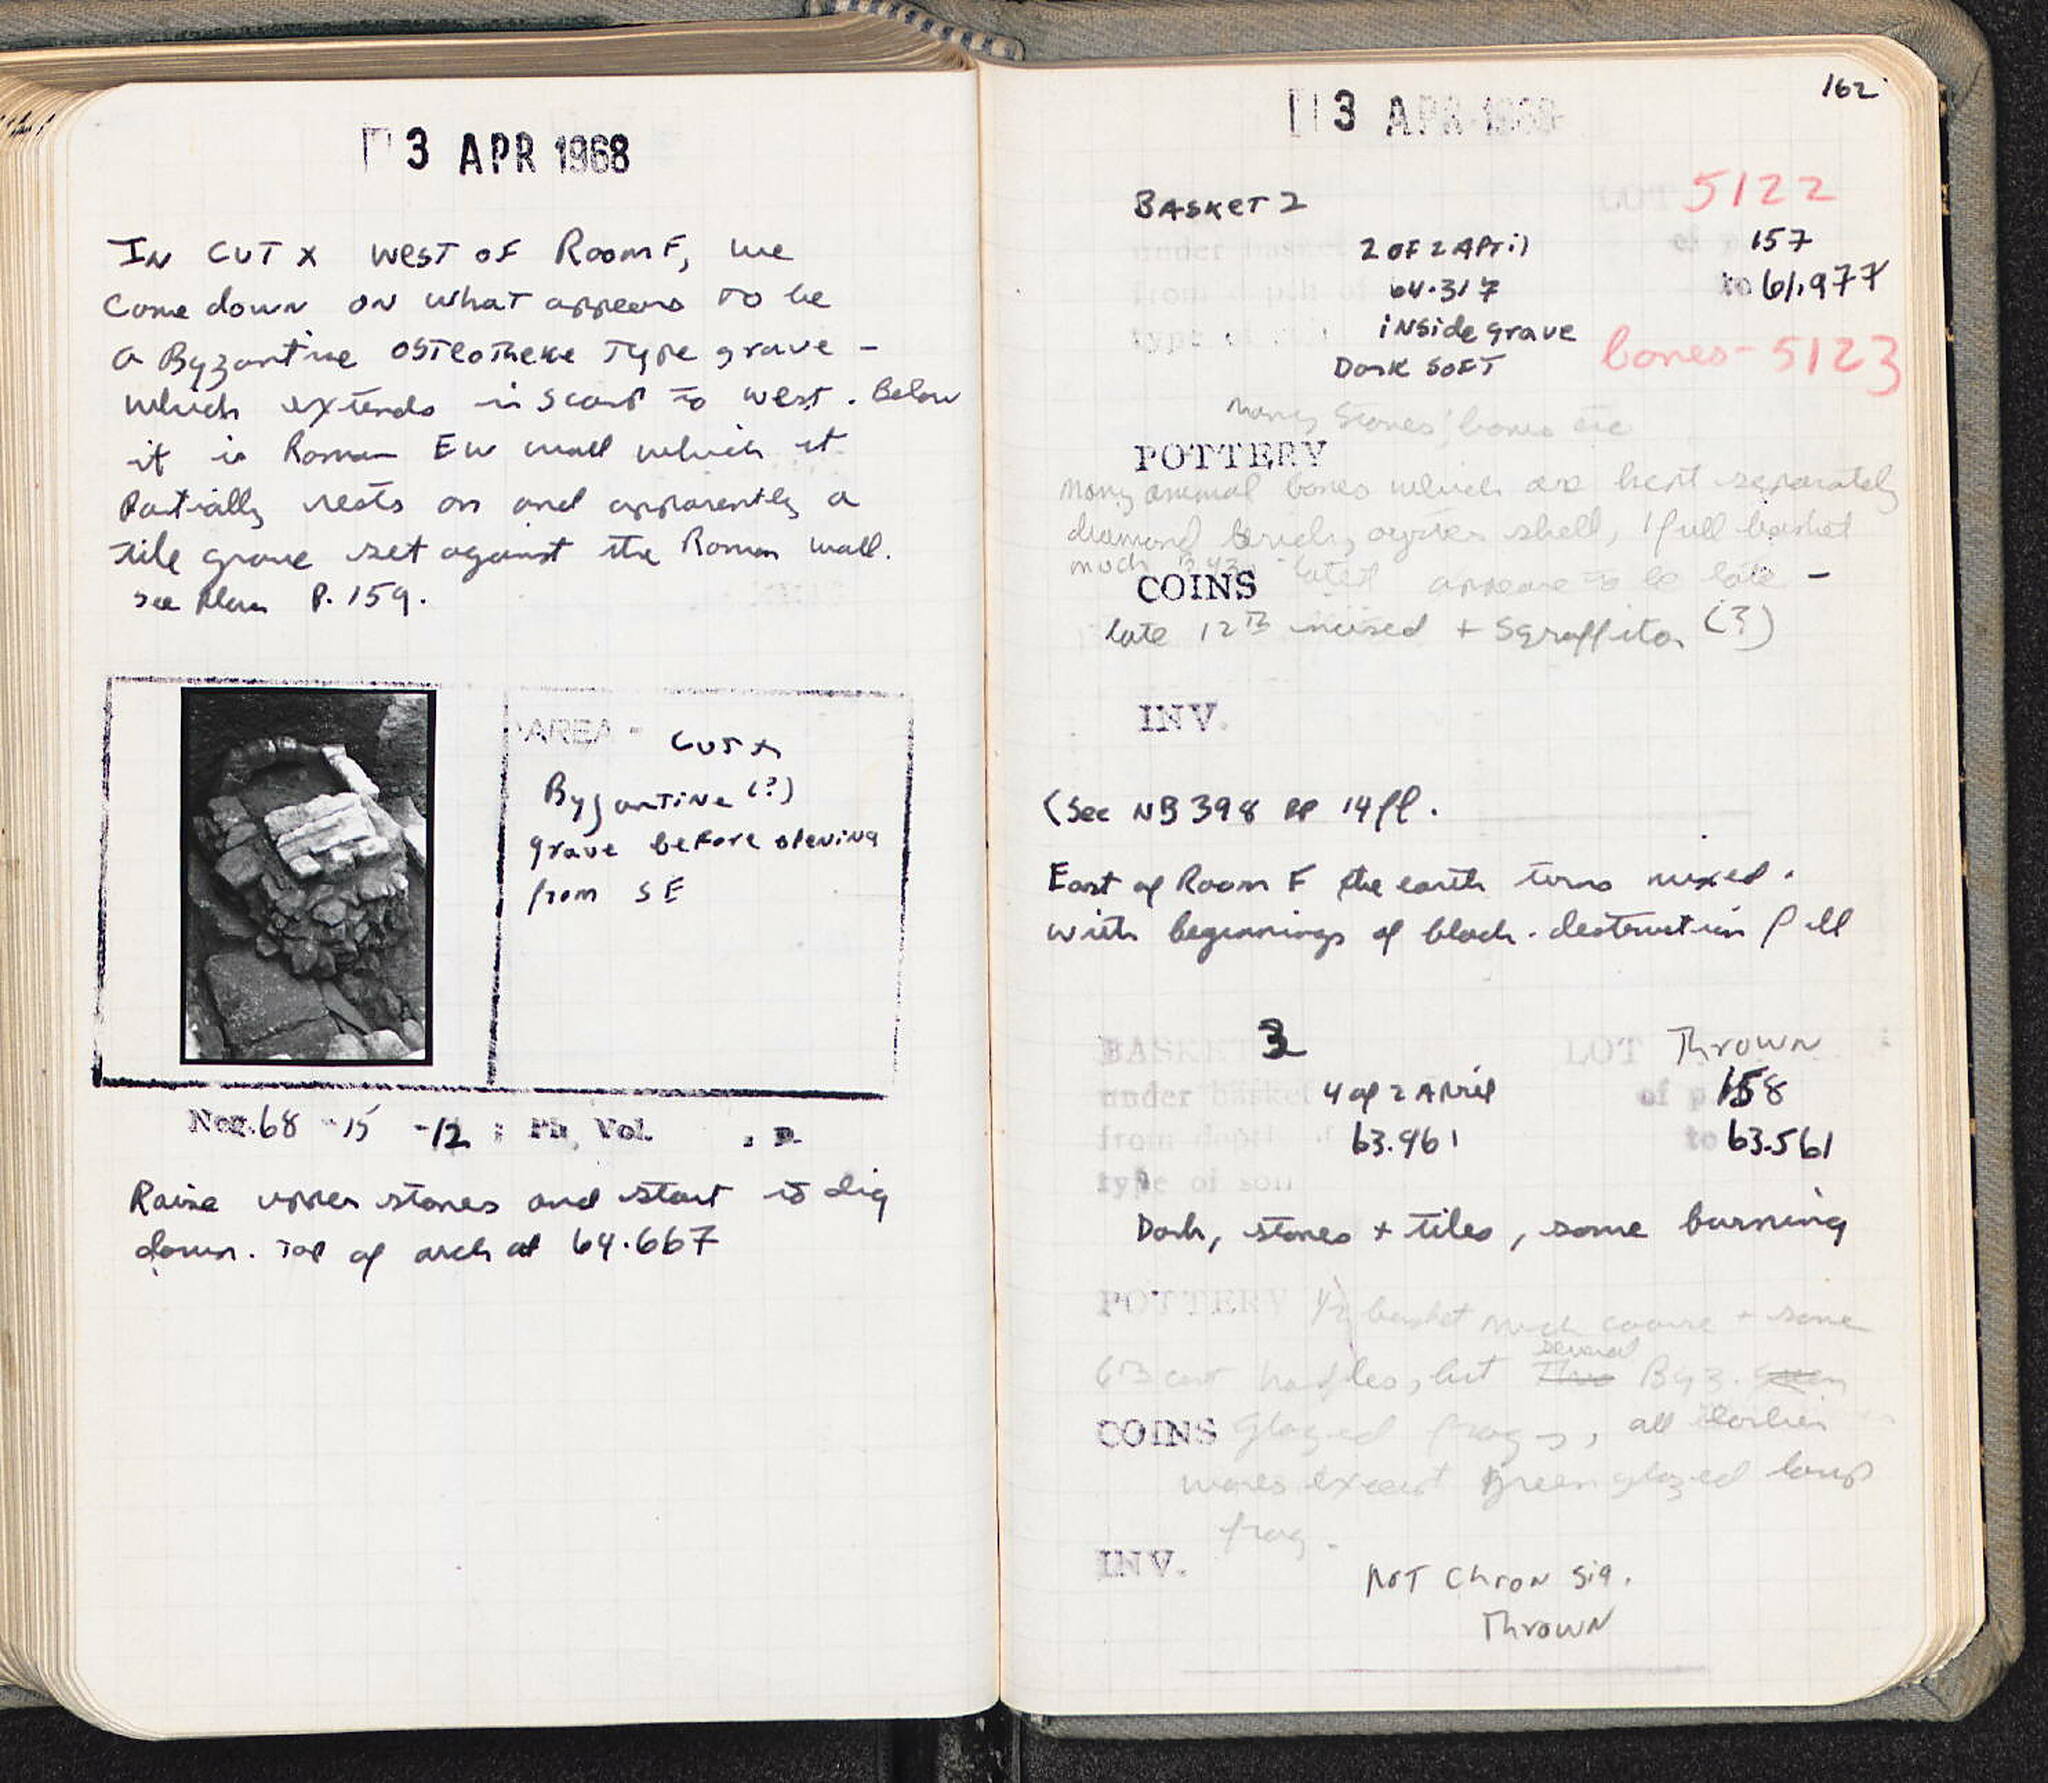 3 APR 1968
IN CUT X West of Room F, we
come down on what appears to be
a Byzantine OSTEOTHEKE Type grave -
which extends in scarp to west. Below
it is Roman EW wall which it
partially rests on and apparently a
tile grave set against the Roman wall.
see Plan P. 159.
AREA - CUT X
Byzantine (?)
grave before opening
from SE
Neg. 68 - 15 - 12 ; Ph. Vol. , p.
Raise upper stones and start to dig
down. Top of arch at 64.667
162
3 APR 1968
BASKET 2 LOT 5122
under basket 2 OF 2 April of p. 157
from depth of 64.317 to 61.977
type of soil inside grave
bones - 5123
Dark SOFT
Many stones, bones etc
POTTERY
Many animal bones which are kept separately
diamond brick, oyster shell, 1 full basket
much Byz. latest appears to be late -
COINS
late 12th incised + Sgraffito (?)
INV.
(See NB 398 pp 14ff.
East of Room F the earth turns mixed.
with beginnings of black destruction fill
BASKET 3 LOT Thrown
under basket 4 of 2 April of p. 158
from depth of 63.961 to 63.561
type of soil
Dark, stones + tiles, some burning
POTTERY 1/2 basket much coarse + some
handles, but several Byz.
COINS glazed frags, all earlier
wares except green glazed lamp
frag.
INV.
NOT Chron Sig.
Thrown